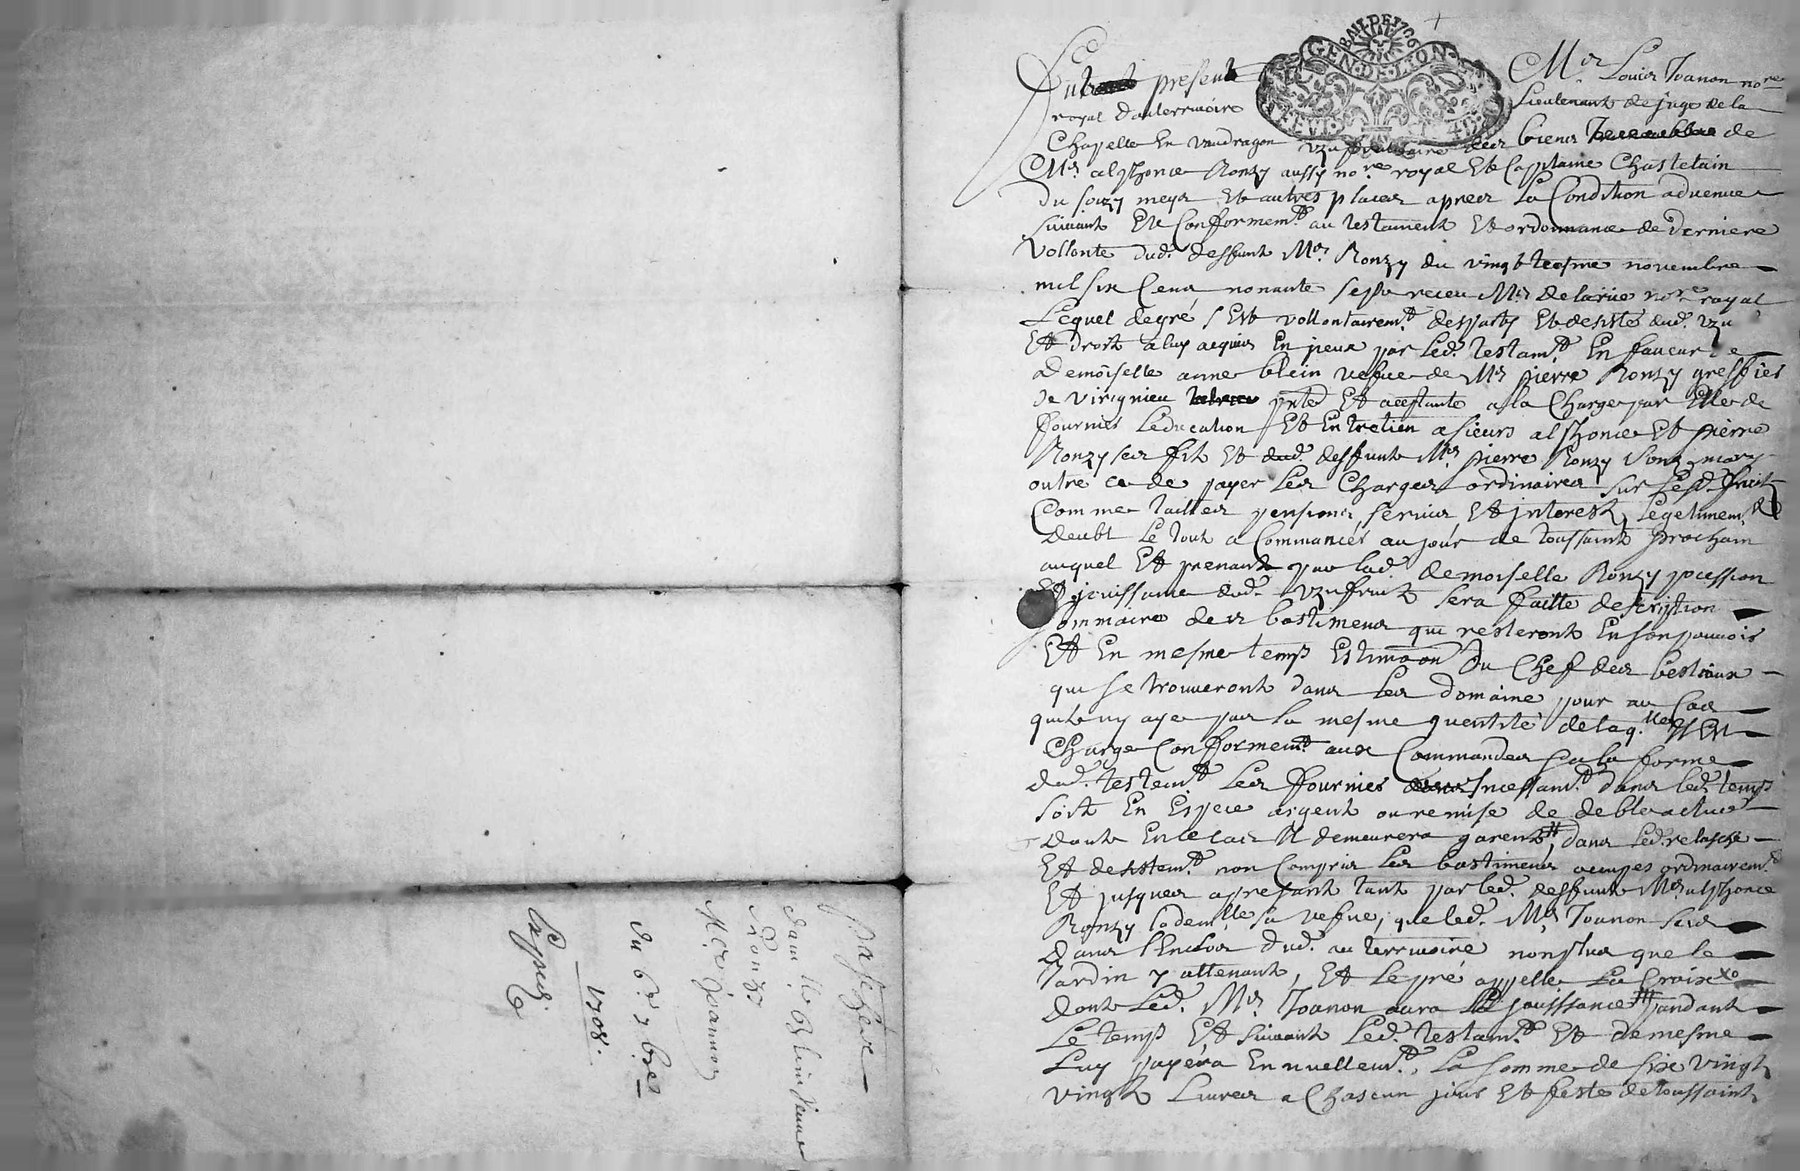 BAIL DE 1706
GEN · DE · LION
present Mer Louis Joanon nore
royal Lieutenant de juge de la
Chapelle En vaudragon uzufruitaire des biens de
Mre alphonce Ronzy aussy nore royal Et Cappitaine Chastelain
du souzy meys Et autres places apres La Condition advenue
suivant Et Conformemt. au testament Et ordonnance de derniere
vollonté dud. deffunt Mre Ronzy du vingt novembre
mil six Cens nonante sept receu Mre Delarue nore royal
Lequel de gré s'Est vollontairemt. desparty Et desisté dud. uzu
Et droit a luy acquis En jceux par Led. testamt. En faveur de
Demoiselle anne blein vefve de Mre pierre Ronzy greffier
de virignieu pnte Et aceptante a la Charge par Elle de
fournir L'education Et Entretien a sieurs alphonce Et pierre
Ronzy ses fils Et dud. deffunt Mre pierre Ronzy son mary
outre ce de payer Les Charges ordinaires sur Lesd. fruits
Comme tailles pensions servis Et jnterests Legitimemt.
deubt Le tout a Commancer au jour de toussaint prochain
auquel Et prenant par lad. demoiselle Ronzy pocession
Et jouissance dud. uzufruit sera faitte description
sommaire des bastimens qui resteront En son pouvoir
Et En mesme temps Estimaon du Chef des bestiaux
qui se trouveront dans Les domaine pour au Cas
quil ny aye pas la mesme quentité
Charge Conformemt. aux Commandes a la forme
dud. testemt. Les fournir jncessamt. dans led. temps
soit En Espece argent ou remise de
dont En ce cas Il demeurera garent dans Led. relasche
Et desistemt. non Compris Les bastimens ocupés ordinairemt.
Et jusques a present tant par led. deffunt Mre alphonce
Ronzy la demlle sa vefve, que led. Mre Joanon
dans L'Enclos dud. non plus que le
Jardin y attenant, Et Le pré appellé La Croix
dont Led. Mre Joanon aura La jouissance pandant
Le temps Et suivant Led. testamt. Et de mesme
Luy payera Ennuellemt. La somme de six vingt
vingt Livres a Chascun jour Et feste de toussaint
dam lle Blein jeanne
Ronzy
Mer Joannon
du 6e 7bre
1708.